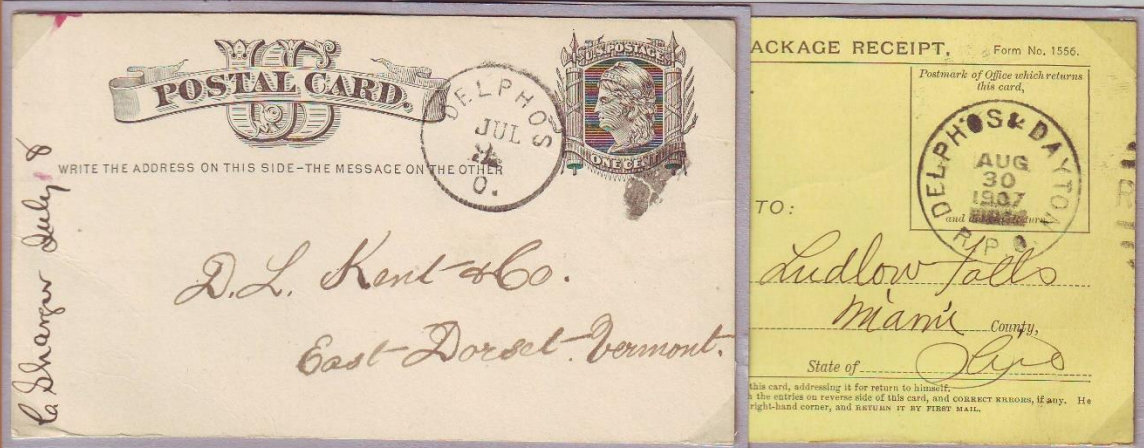 U S
POSTAL CARD.
WRITE THE ADDRESS ON THIS SIDE–THE MESSAGE ON THE OTHER
U.S. POSTAGE
ONE CENT
DELPHOS
JUL
O.
D. L. Kent & Co.
East Dorset. Vermont.
July 8
ACKAGE RECEIPT,
Form No. 1556.
Postmark of Office which returns
this card,
and date of return.
DELPHOS & DAYTON
AUG
30
1907
R.P.O.
TO:
Ludlow Falls
Miami County,
State of Ohio
this card, addressing it for return to himself.
the entries on reverse side of this card, and CORRECT ERRORS, if any. He
right-hand corner, and RETURN IT BY FIRST MAIL.